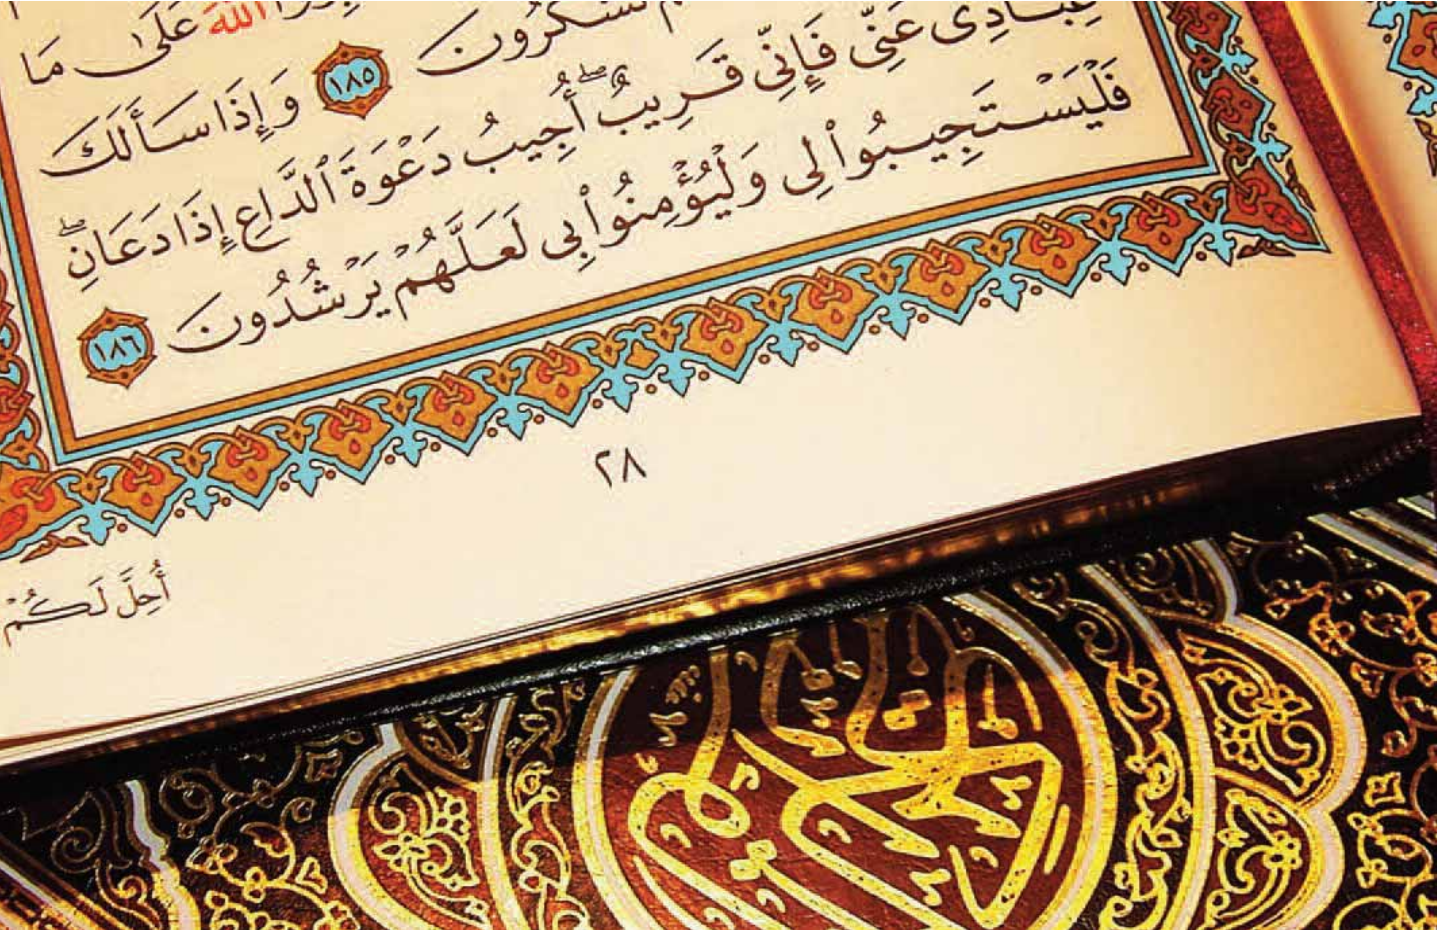 الله عَلَىٰ مَا
تَشْكُرُونَ ١٨٥ وَإِذَا سَأَلَكَ
عِبَادِى عَنِّى فَإِنِّى قَرِيبٌ ۖ أُجِيبُ دَعْوَةَ ٱلدَّاعِ إِذَا دَعَانِ ۖ
فَلْيَسْتَجِيبُوا۟ لِى وَلْيُؤْمِنُوا۟ بِى لَعَلَّهُمْ يَرْشُدُونَ ١٨٦
٢٨
أُحِلَّ لَكُمْ